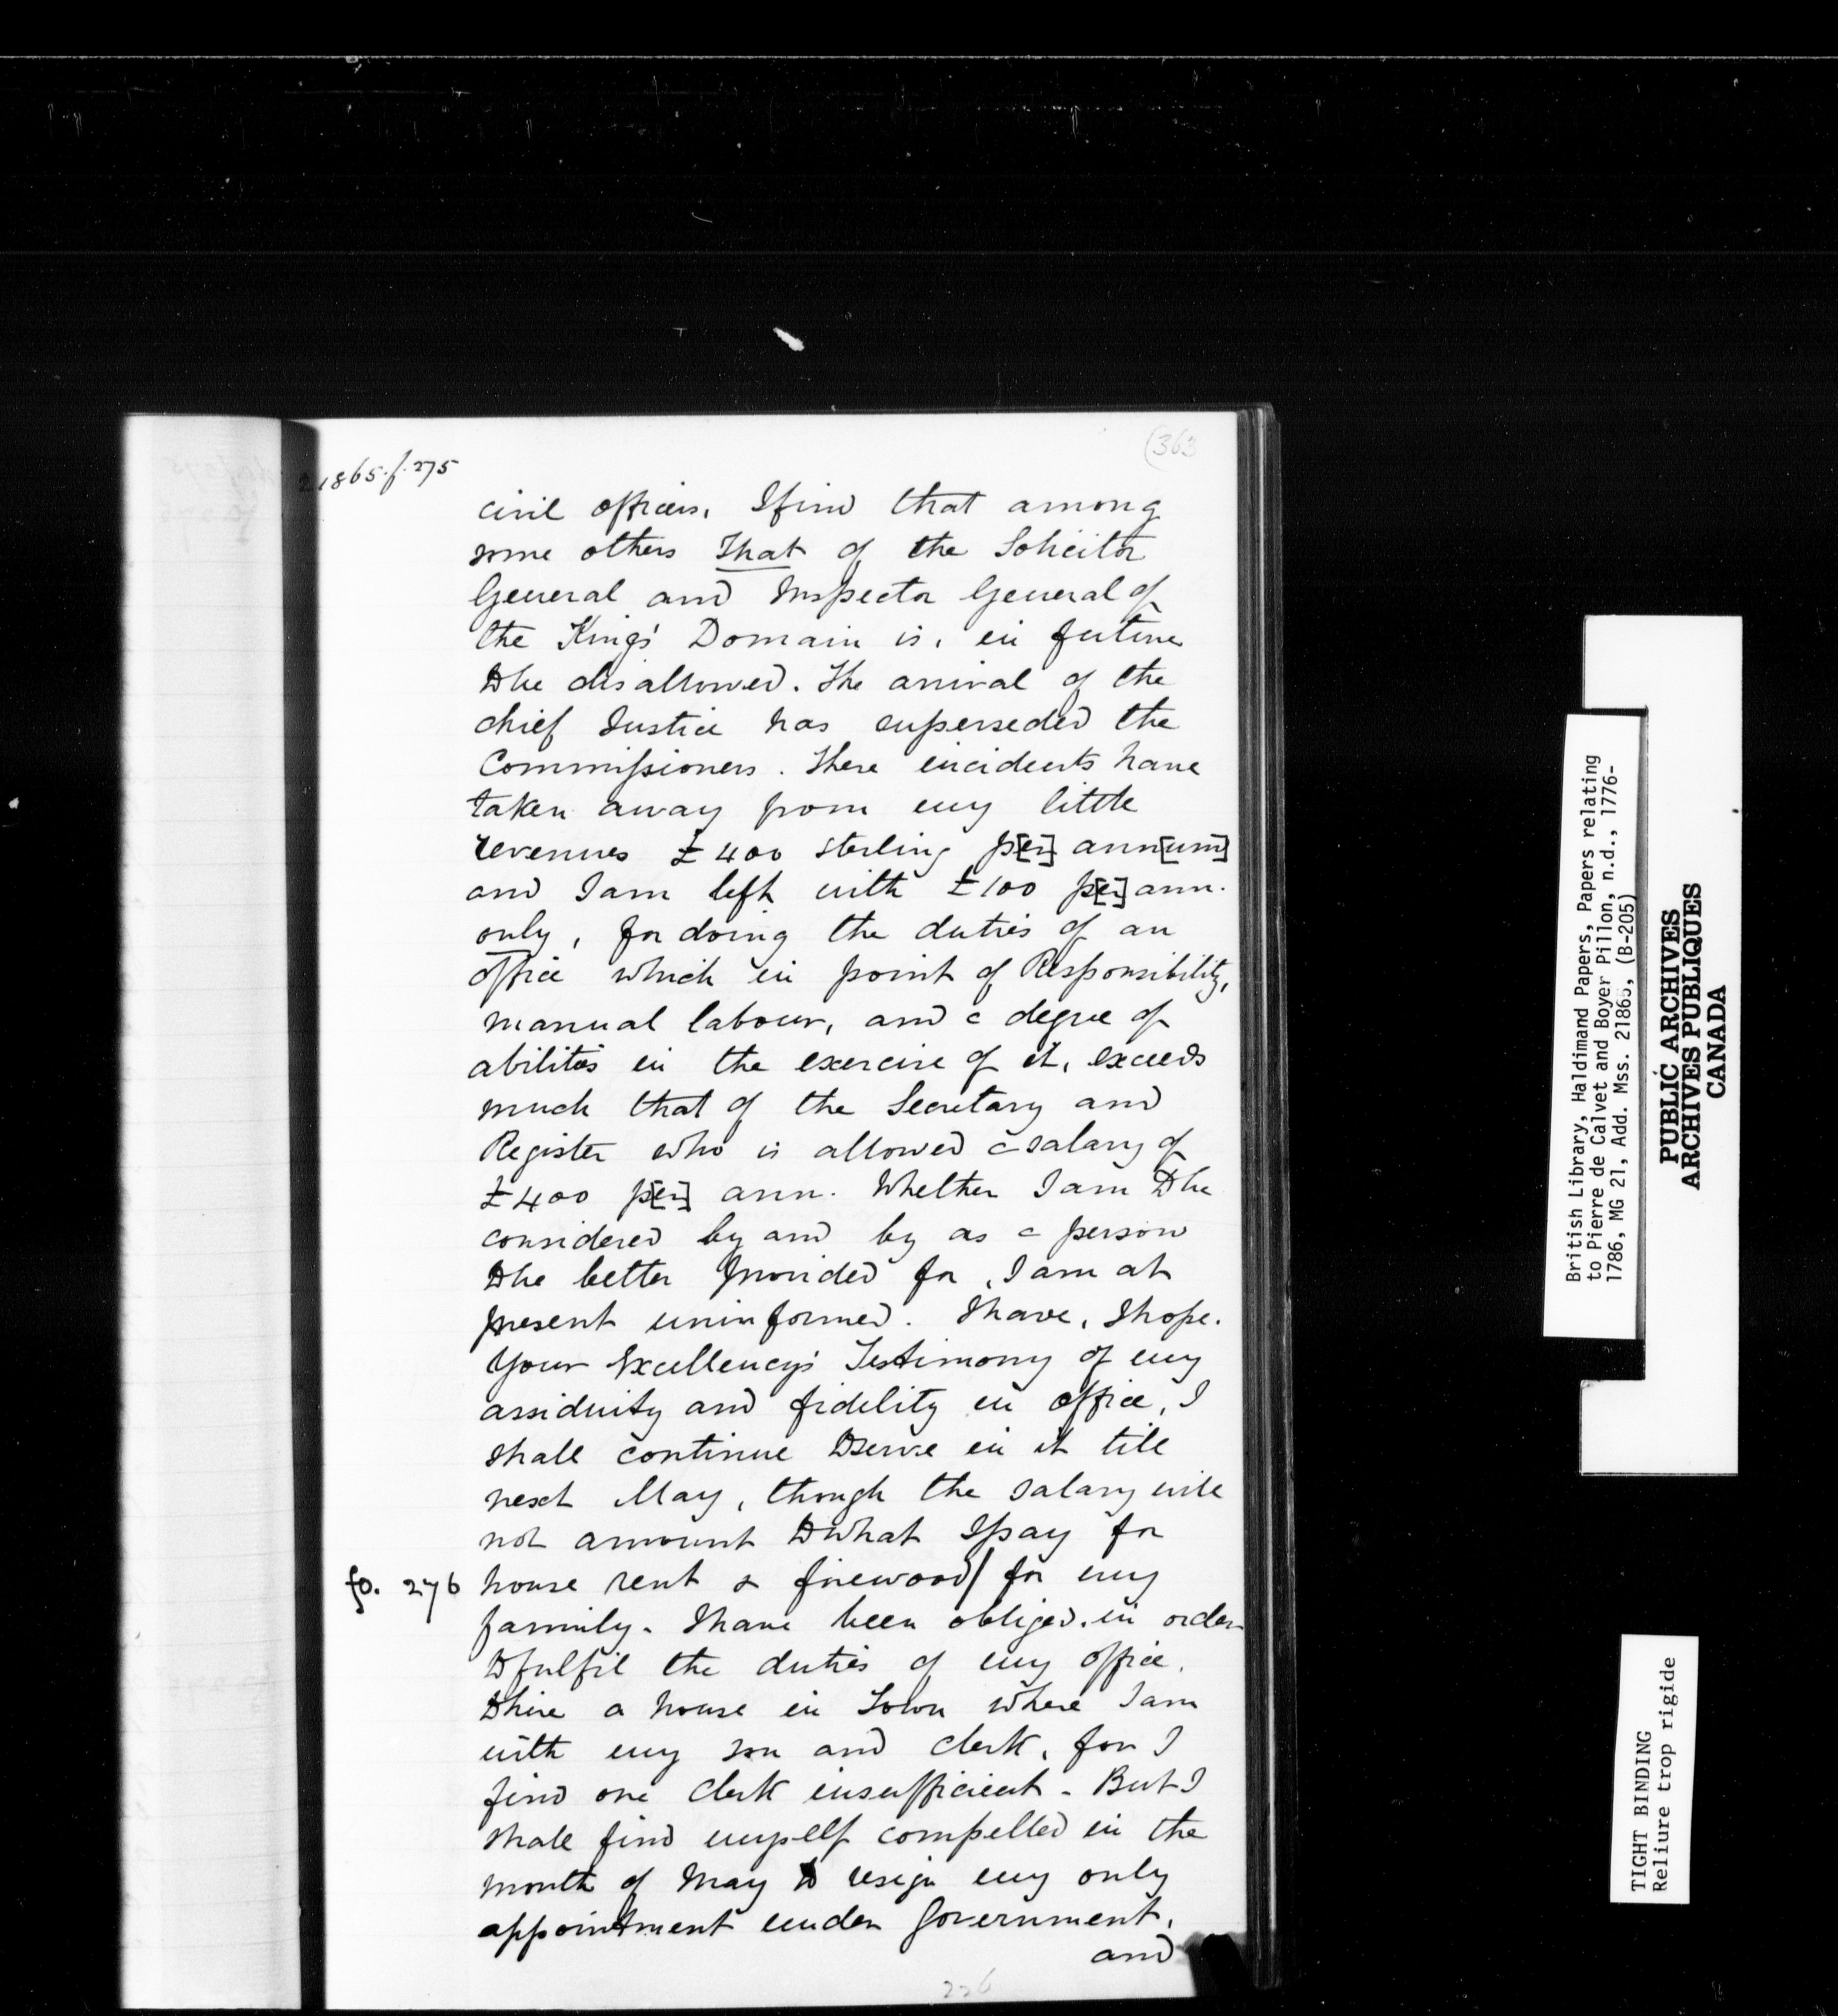 (363
21865. f. 275
civil officers. I find that among
some others that of the Solicitor
General and Inspector General of
the King's Domain is, in future
to be disallowed. The arrival of the
chief Justice has superseded the
Commissioners. These incidents have
taken away from my little
revenues £400 sterling p[er] ann[um]
and I am left with £100 p[er] ann.
only, for doing the duties of an
office which in point of Responsibility,
manual labour, and a degree of
abilities in the exercise of it, exceeds
much that of the Secretary and
Register who is allowed a salary of
£400 p[er] ann. Whether I am to be
considered by and by as a person
to be better provided for, I am at
present uninformed. I have, I hope.
Your Excellency's Testimony of my
assiduity and fidelity in office, I
shall continue to serve in it till
next May, though the salary will
not amount to what I pay for
fo. 276 house rent & firewood/ for my
family. I have been obliged, in order
to fulfil the duties of my office,
to hire a house in Town where I am
with my son and clerk, for I
find one clerk insufficient - But I
shall find myself compelled in the
month of May to resign my only
appointment under Government,
and
226
British Library, Haldimand Papers, Papers relating
to Pierre de Calvet and Boyer Pillon, n.d., 1776-
1786, MG 21, Add. Mss. 21865, (B-205)
PUBLIC ARCHIVES
ARCHIVES PUBLIQUES
CANADA
TIGHT BINDING
Reliure trop rigide